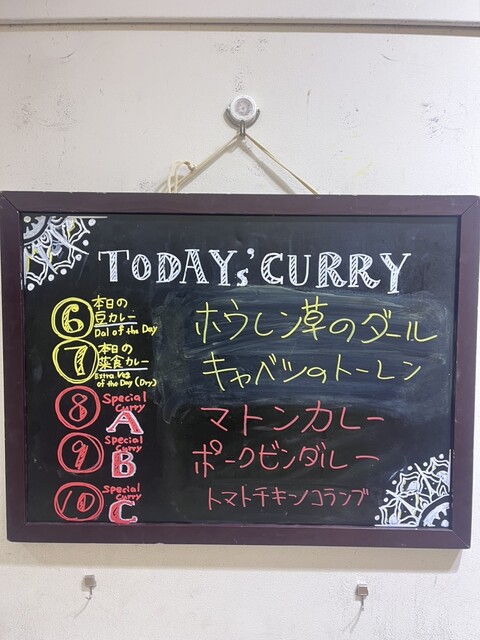 TODAYs' CURRY
⑥ 本日の
豆カレー
Dal of the Day
ホウレン草のダール
⑦ 本日の
菜食カレー
Extra Veg
of the Day (Dry)
キャベツのトーレン
⑧ Special
Curry
A
マトンカレー
⑨ Special
Curry
B
ポークビンダルー
⑩ Special
Curry
C
トマトチキンコランブ